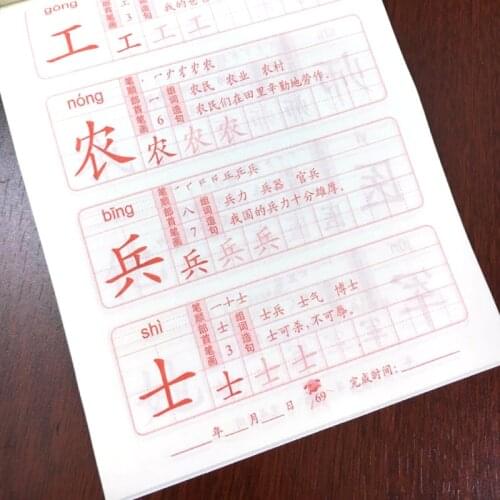 gōng
工 工 工 工
笔画 3
造句 我的爸爸
nóng
农 农 农 农
笔顺 丶 ナ 少 农 农
部首 冖 笔画 6
组词 农民 农业 农村
造句 农民们在田里辛勤地劳作。
bīng
兵 兵 兵 兵
部首 八 笔画 7
组词 兵力 兵器 官兵
造句 我国的兵力十分雄厚。
shì
士 士 士 士
笔顺 一 十 士
部首 士 笔画 3
组词 士兵 士气 博士
造句 士可杀,不可辱。
年 月 日 69 完成时间: